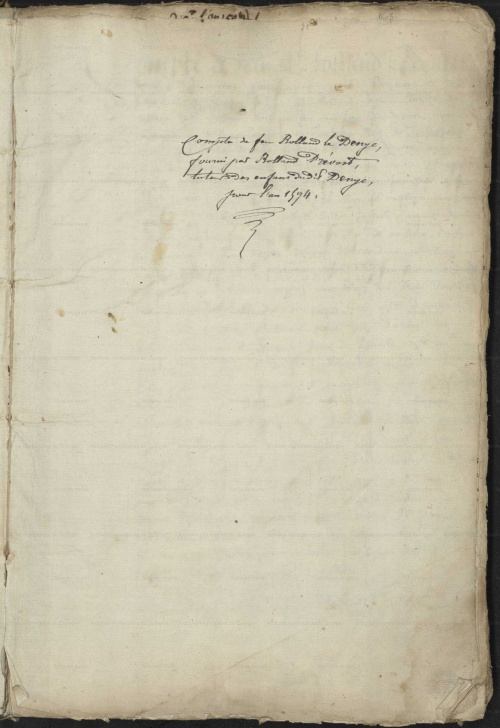 Compte de feu Rolland le Denye,
fourni par Rolland Prévost,
tuteur des enfans dudit Denye,
pour l'an 1594.